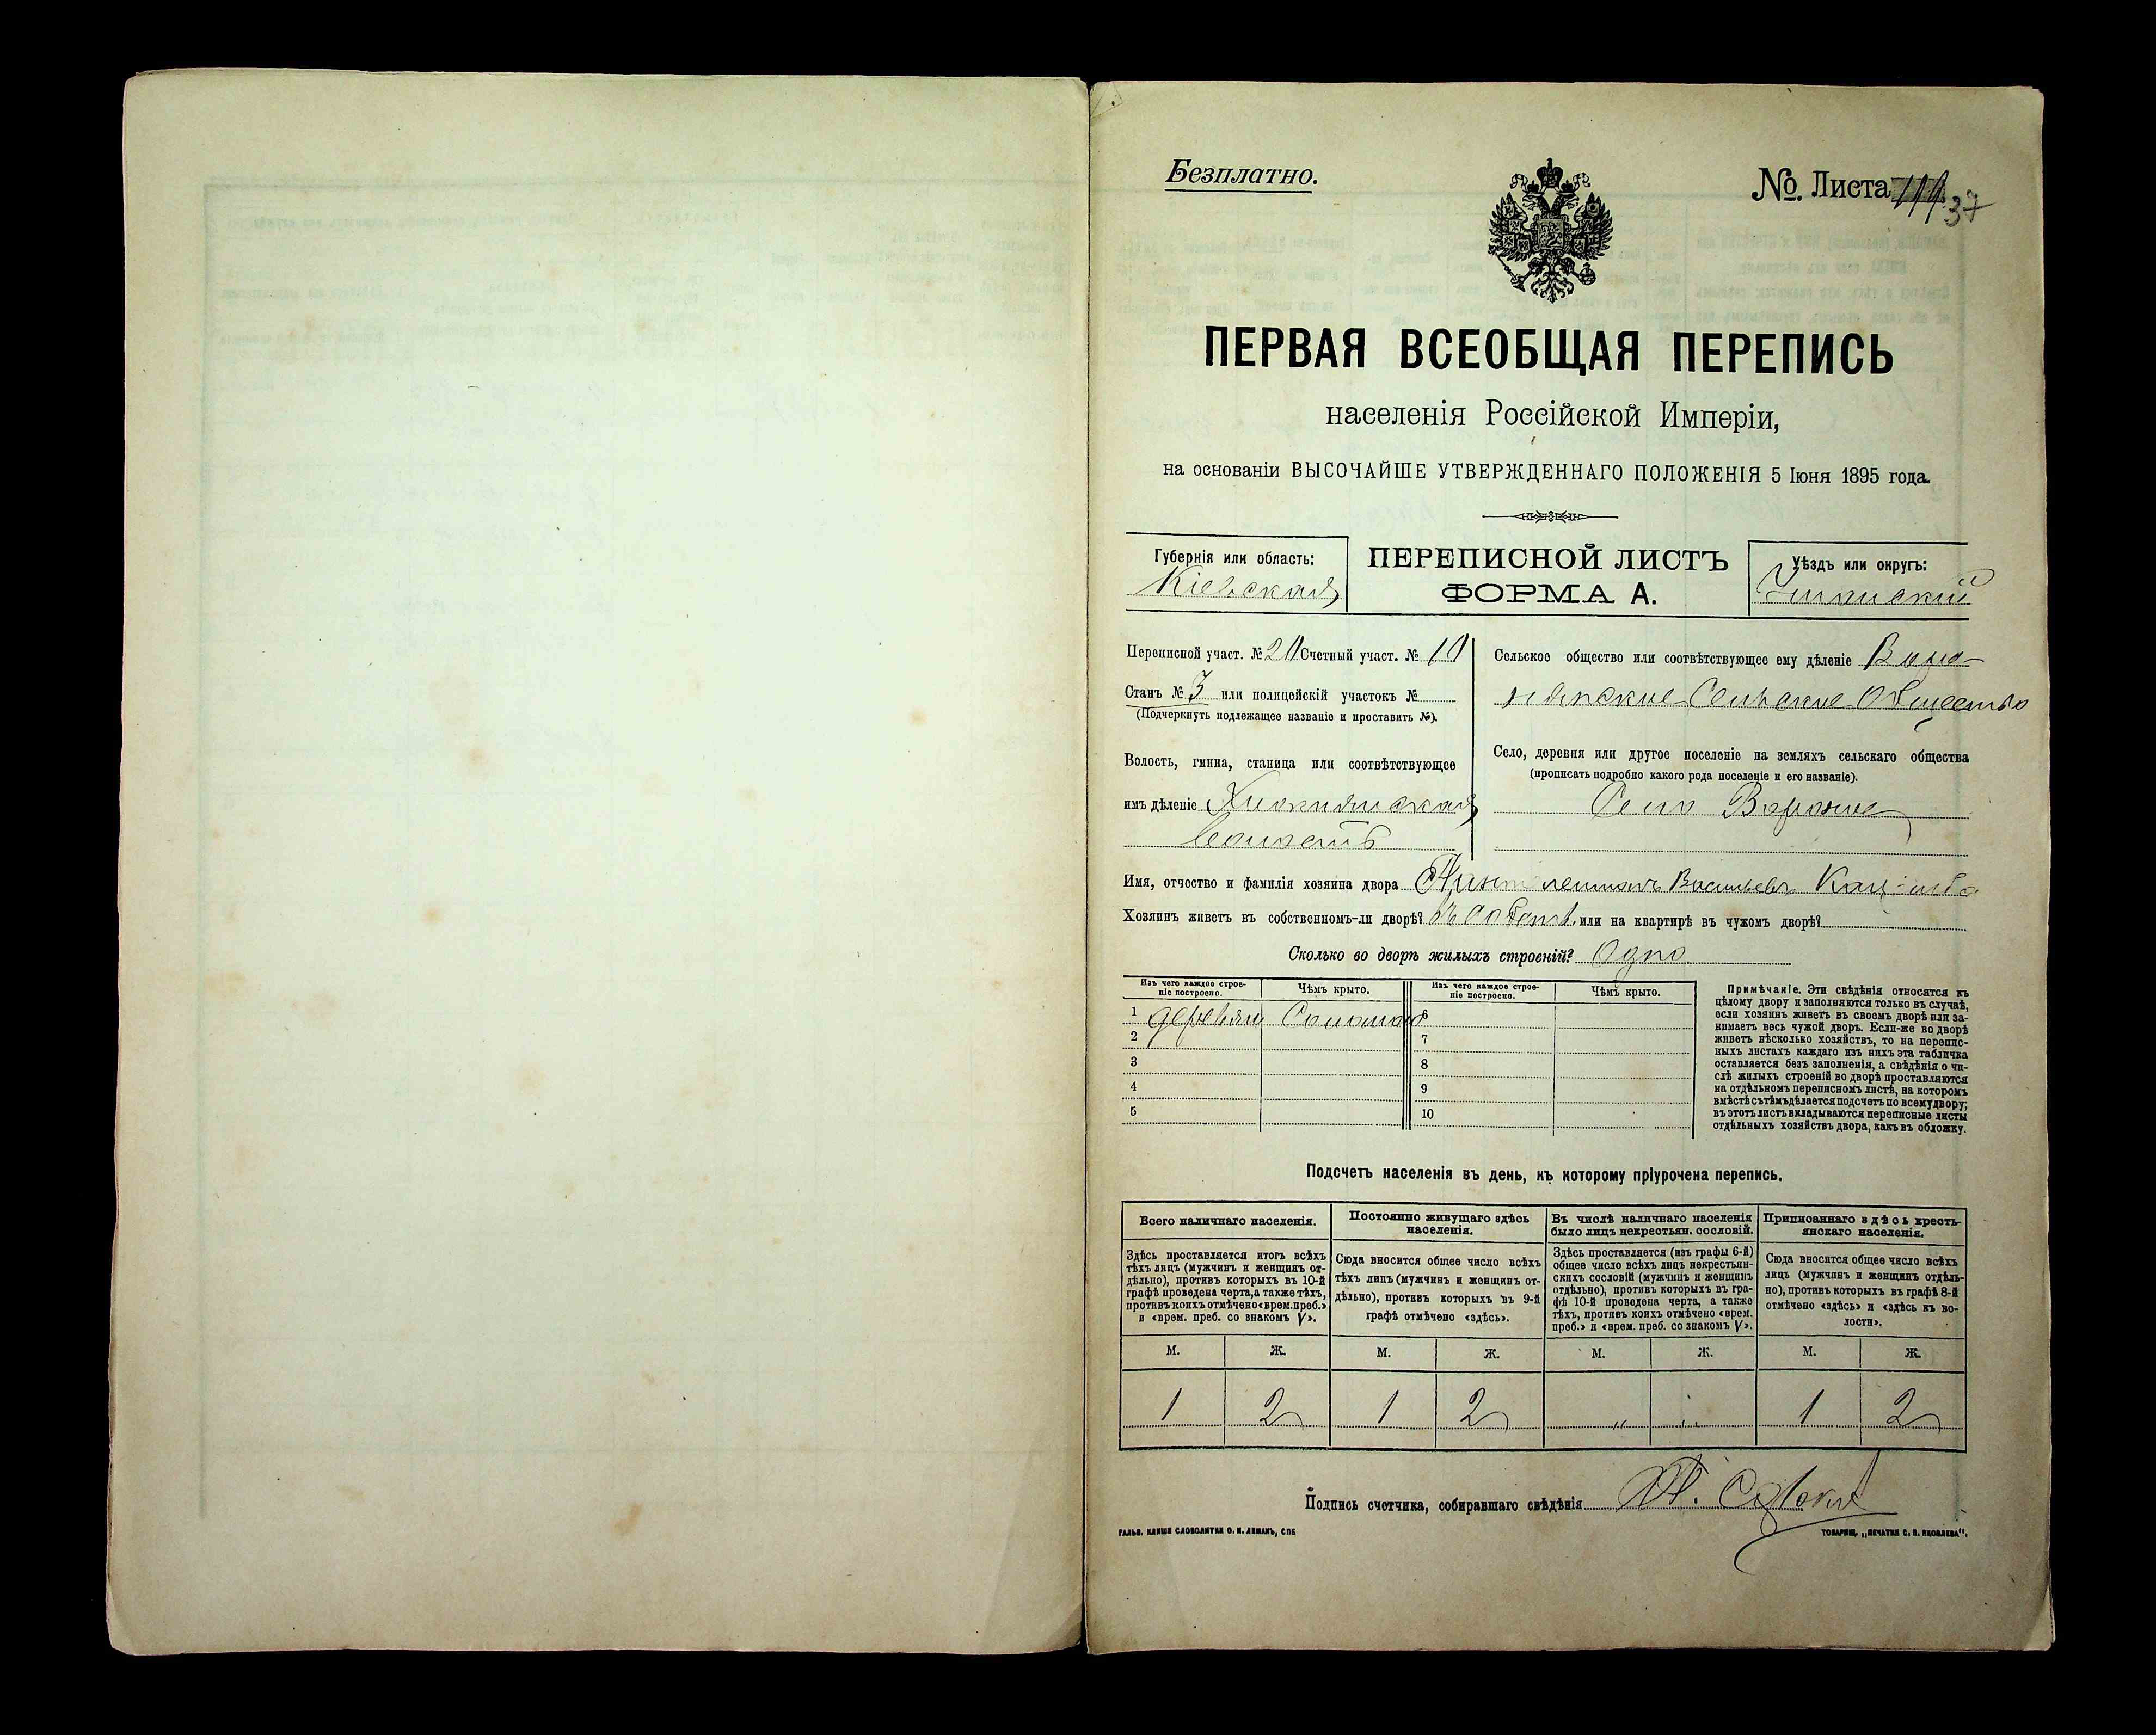 Безплатно.
№. Листа 37
ПЕРВАЯ ВСЕОБЩАЯ ПЕРЕПИСЬ
населенія Россійской Имперіи,
на основаніи ВЫСОЧАЙШЕ УТВЕРЖДЕННАГО ПОЛОЖЕНІЯ 5 Іюня 1895 года.
Губернія или область:
Кіевская
ПЕРЕПИСНОЙ ЛИСТЪ
ФОРМА А.
Уѣздъ или округъ:
Уманскій
Переписной участ. № 20 Счетный участ. № 10
Станъ № 3 или полицейскій участокъ №
(Подчеркнуть подлежащее названіе и проставить №).
Волость, гмина, станица или соотвѣтствующее
имъ дѣленіе
волость
Сельское общество или соотвѣтствующее ему дѣленіе Воро-
нянское Сельское Общество
Село, деревня или другое поселеніе на земляхъ сельскаго общества
(прописать подробно какого рода поселеніе и его названіе).
Село Вороное
Имя, отчество и фамилія хозяина двора Васильевъ
Хозяинъ живетъ въ собственномъ-ли дворѣ? или на квартирѣ въ чужомъ дворѣ?
Сколько во дворѣ жилыхъ строеній? Одно
Изъ чего каждое строе-
ніе построено.
Чѣмъ крыто.
Изъ чего каждое строе-
ніе построено.
Чѣмъ крыто.
1 деревян Соломою 6
2 7
3 8
4 9
5 10
Примѣчаніе. Эти свѣдѣнія относятся къ
цѣлому двору и заполняются только въ случаѣ,
если хозяинъ живетъ въ своемъ дворѣ или за-
нимаетъ весь чужой дворъ. Если-же во дворѣ
живетъ нѣсколько хозяйствъ, то на перепис-
ныхъ листахъ каждаго изъ нихъ эта табличка
оставляется безъ заполненія, а свѣдѣнія о чи-
слѣ жилыхъ строеній во дворѣ проставляются
на отдѣльномъ переписномъ листѣ, на которомъ
вмѣстѣ съ тѣмъ дѣлается подсчетъ по всему двору;
въ этотъ листъ вкладываются переписные листы
отдѣльныхъ хозяйствъ двора, какъ въ обложку.
Подсчетъ населенія въ день, къ которому пріурочена перепись.
Всего наличнаго населенія.
Здѣсь проставляется итогъ всѣхъ
тѣхъ лицъ (мужчинъ и женщинъ от-
дѣльно), противъ которыхъ въ 10-й
графѣ проведена черта, а также тѣхъ,
противъ коихъ отмѣчено «врем. преб.»
и «врем. преб. со знакомъ V».
Постоянно живущаго здѣсь
населенія.
Сюда вносится общее число всѣхъ
тѣхъ лицъ (мужчинъ и женщинъ от-
дѣльно), противъ которыхъ въ 9-й
графѣ отмѣчено «здѣсь».
Въ числѣ наличнаго населенія
было лицъ некрестьян. сословій.
Здѣсь проставляется (изъ графы 6-й)
общее число всѣхъ лицъ некрестьян-
скихъ сословій (мужчинъ и женщинъ
отдѣльно), противъ которыхъ въ гра-
фѣ 10-й проведена черта, а также
тѣхъ, противъ коихъ отмѣчено «врем.
преб.» и «врем. преб. со знакомъ V».
Приписаннаго здѣсь кресть-
янскаго населенія.
Сюда вносится общее число всѣхъ
лицъ (мужчинъ и женщинъ отдѣль-
но), противъ которыхъ въ графѣ 8-й
отмѣчено «здѣсь» и «здѣсь въ во-
лости».
М. Ж. М. Ж. М. Ж. М. Ж.
1 2 1 2 „ „ 1 2
Подпись счетчика, собиравшаго свѣдѣнія
ГАЛЬВ. КЛИШЕ СЛОВОЛИТНИ О. И. ЛЕМАНЪ, СПБ
ТОВАРИЩ. „ПЕЧАТНЯ С. П. ЯКОВЛЕВА".